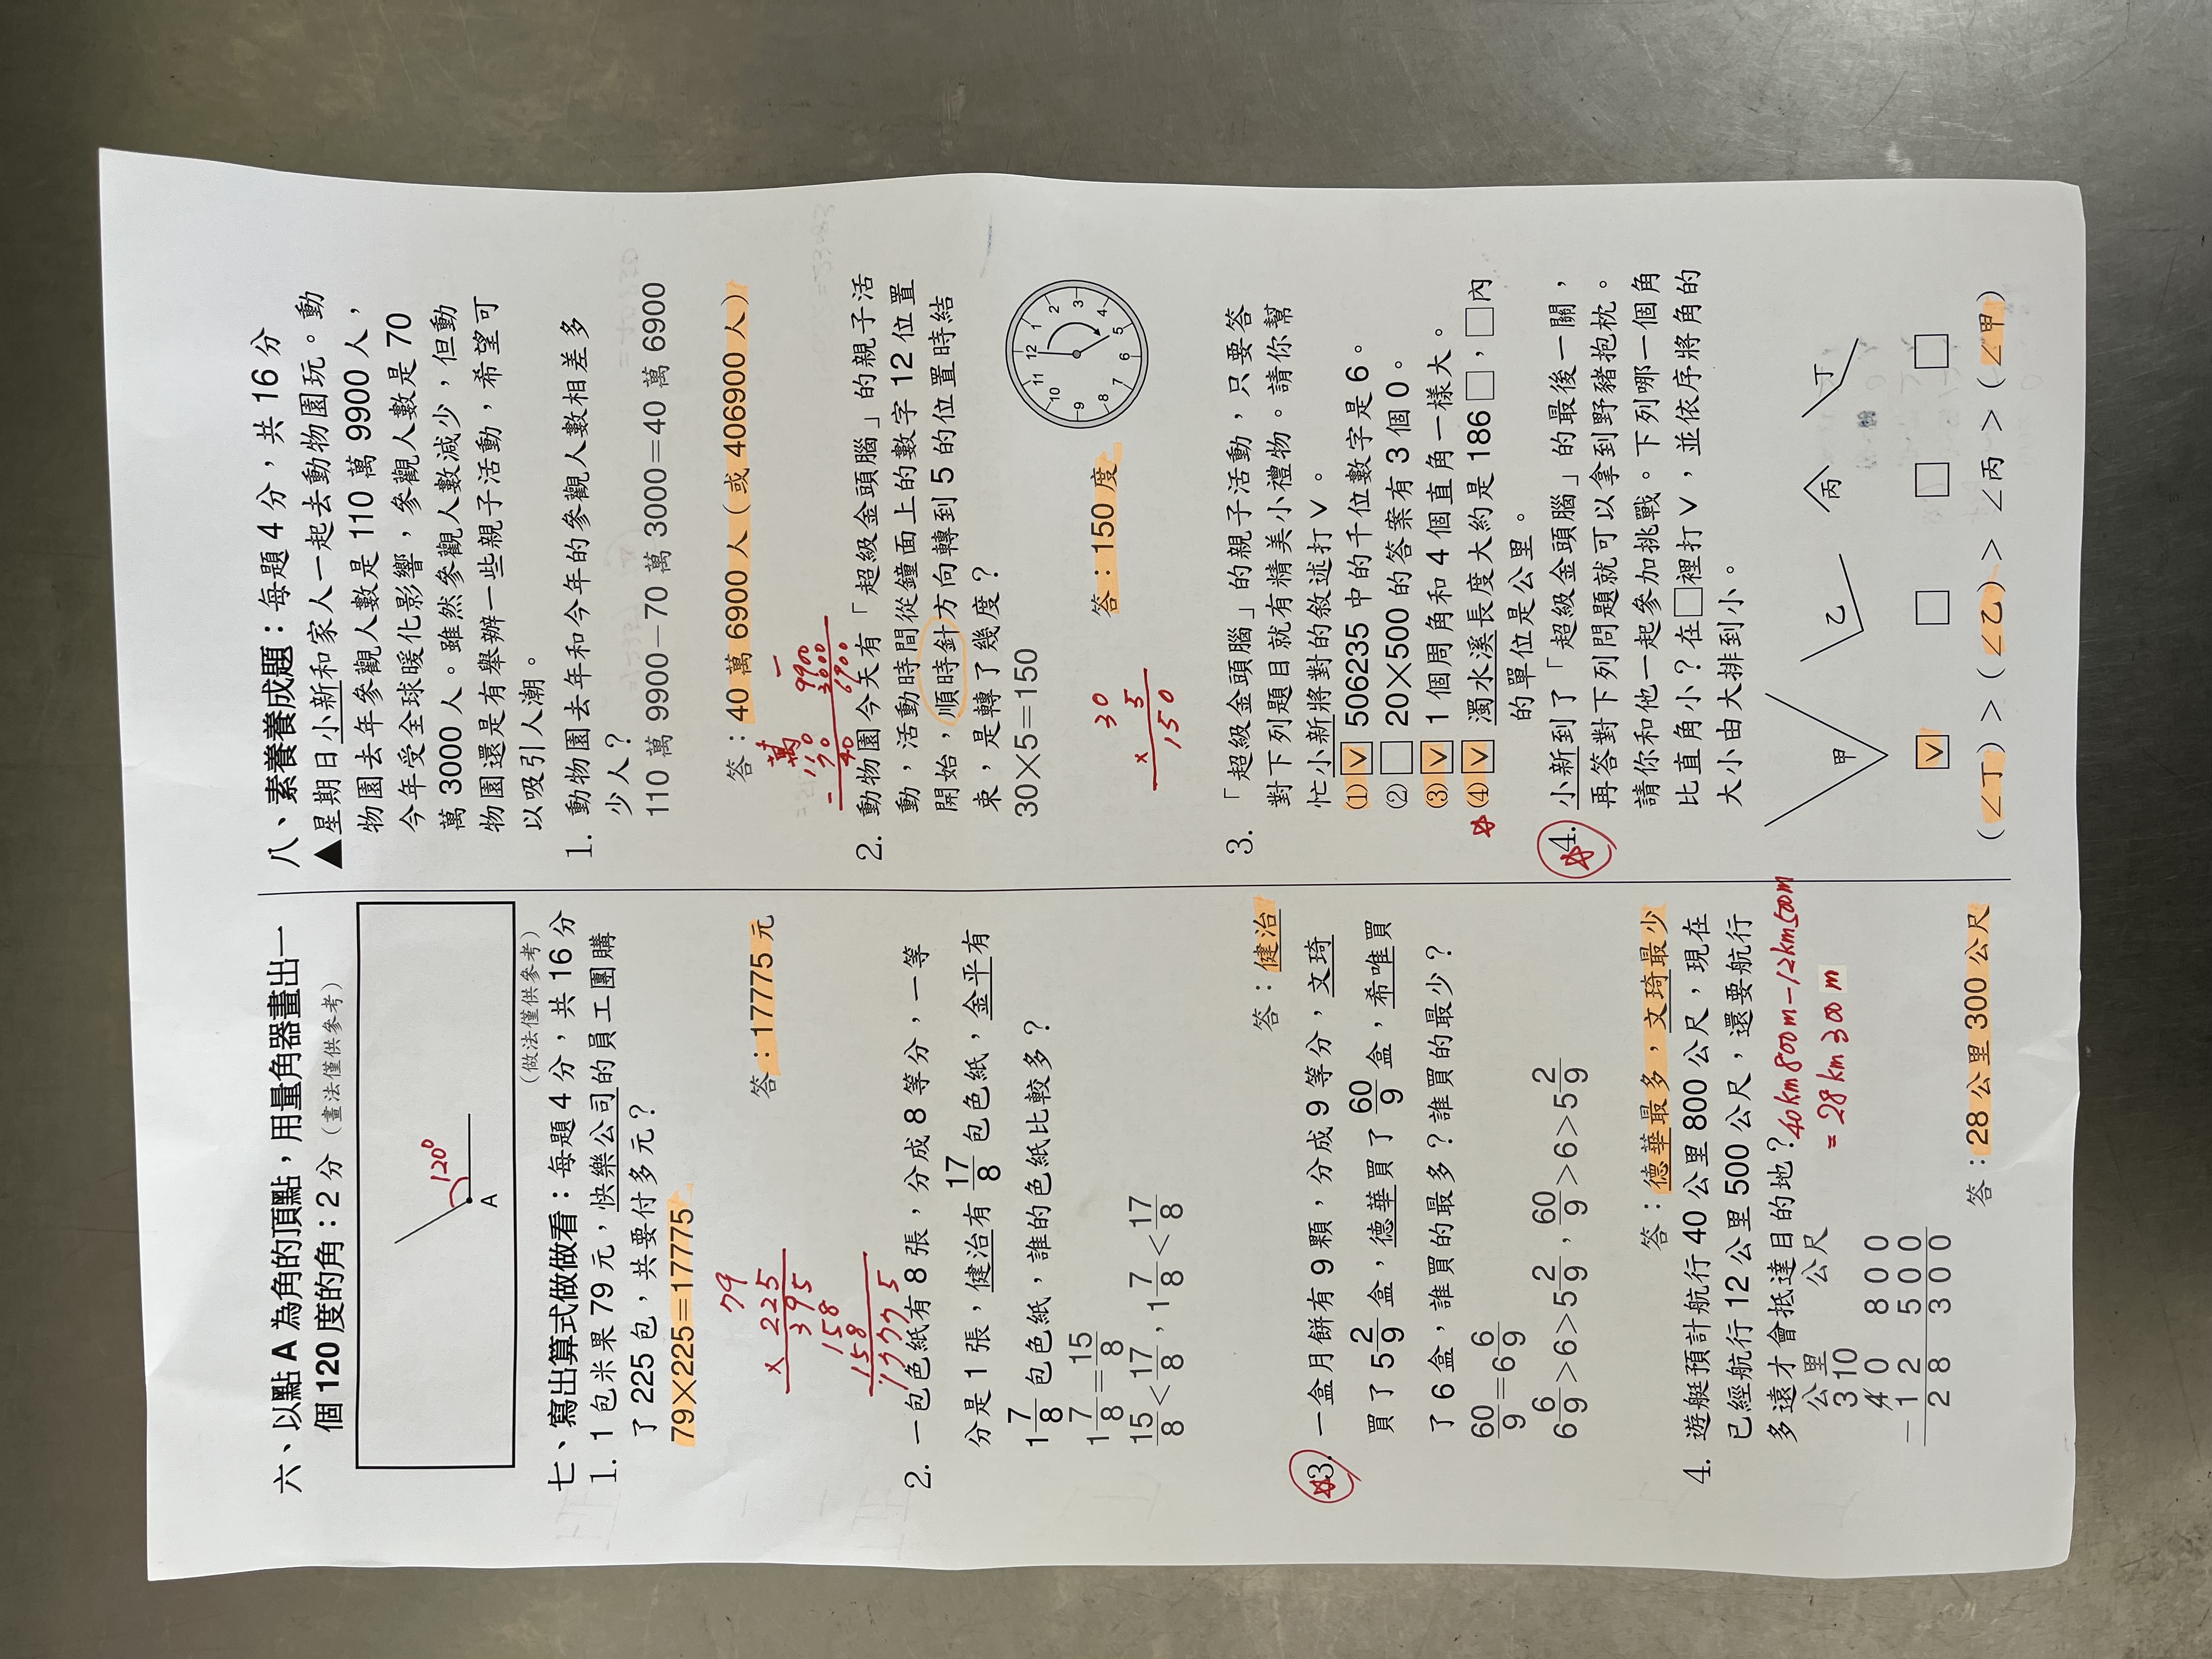 六、以點 A 為角的頂點，用量角器畫出一
個 120 度的角：2 分（畫法僅供參考）
120°
A
（做法僅供參考）
七、寫出算式做做看：每題 4 分，共 16 分
1. 1 包米果 79 元，快樂公司的員工團購
了 225 包，共要付多元？
79×225＝17775
79
× 225
395
158
158
17775
答：17775 元
2. 一包色紙有 8 張，分成 8 等分，一等
分是 1 張，健治有 17/8 包色紙，金平有
1 7/8 包色紙，誰的色紙比較多？
1 7/8＝15/8
15/8＜17/8，1 7/8＜17/8
答：健治
3. 一盒月餅有 9 顆，分成 9 等分，文琦
買了 5 2/9 盒，德華買了 60/9 盒，希唯買
了 6 盒，誰買的最多？誰買的最少？
60/9＝6 6/9
6 6/9＞6＞5 2/9，60/9＞6＞5 2/9
答：德華最多，文琦最少
4. 遊艇預計航行 40 公里 800 公尺，現在
已經航行 12 公里 500 公尺，還要航行
多遠才會抵達目的地？
40km800m－12km500m
＝28km300m
公里 公尺
3 10
4 0 8 0 0
－ 1 2 5 0 0
2 8 3 0 0
答：28 公里 300 公尺
八、素養養成題：每題 4 分，共 16 分
▲星期日小新和家人一起去動物園玩。動
物園去年參觀人數是 110 萬 9900 人，
今年受全球暖化影響，參觀人數是 70
萬 3000 人。雖然參觀人數減少，但動
物園還是有舉辦一些親子活動，希望可
以吸引人潮。
1. 動物園去年和今年的參觀人數相差多
少人？
110 萬 9900－70 萬 3000＝40 萬 6900
答：40 萬 6900 人（或 406900 人）
萬
110 9900
－ 70 － 3000
40 6900
2. 動物園今天有「超級金頭腦」的親子活
動，活動時間從鐘面上的數字 12 位置
開始，順時針方向轉到 5 的位置時結
束，是轉了幾度？
30×5＝150
12 1 2 3 4 5 6 7 8 9 10 11
答：150 度
30
× 5
150
3. 「超級金頭腦」的親子活動，只要答
對下列題目就有精美小禮物。請你幫
忙小新將對的敘述打ˇ。
(1)☑ 506235 中的千位數字是 6。
(2)□ 20×500 的答案有 3 個 0。
(3)☑ 1 個周角和 4 個直角一樣大。
(4)☑ 濁水溪長度大約是 186 □，□內
的單位是公里。
4. 小新到了「超級金頭腦」的最後一關，
再答對下列問題就可以拿到野豬抱枕。
請你和他一起參加挑戰。下列哪一個角
比直角小？在□裡打ˇ，並依序將角的
大小由大排到小。
甲 乙 丙 丁
☑ □ □ □
（∠丁）＞（∠乙）＞∠丙＞（∠甲）